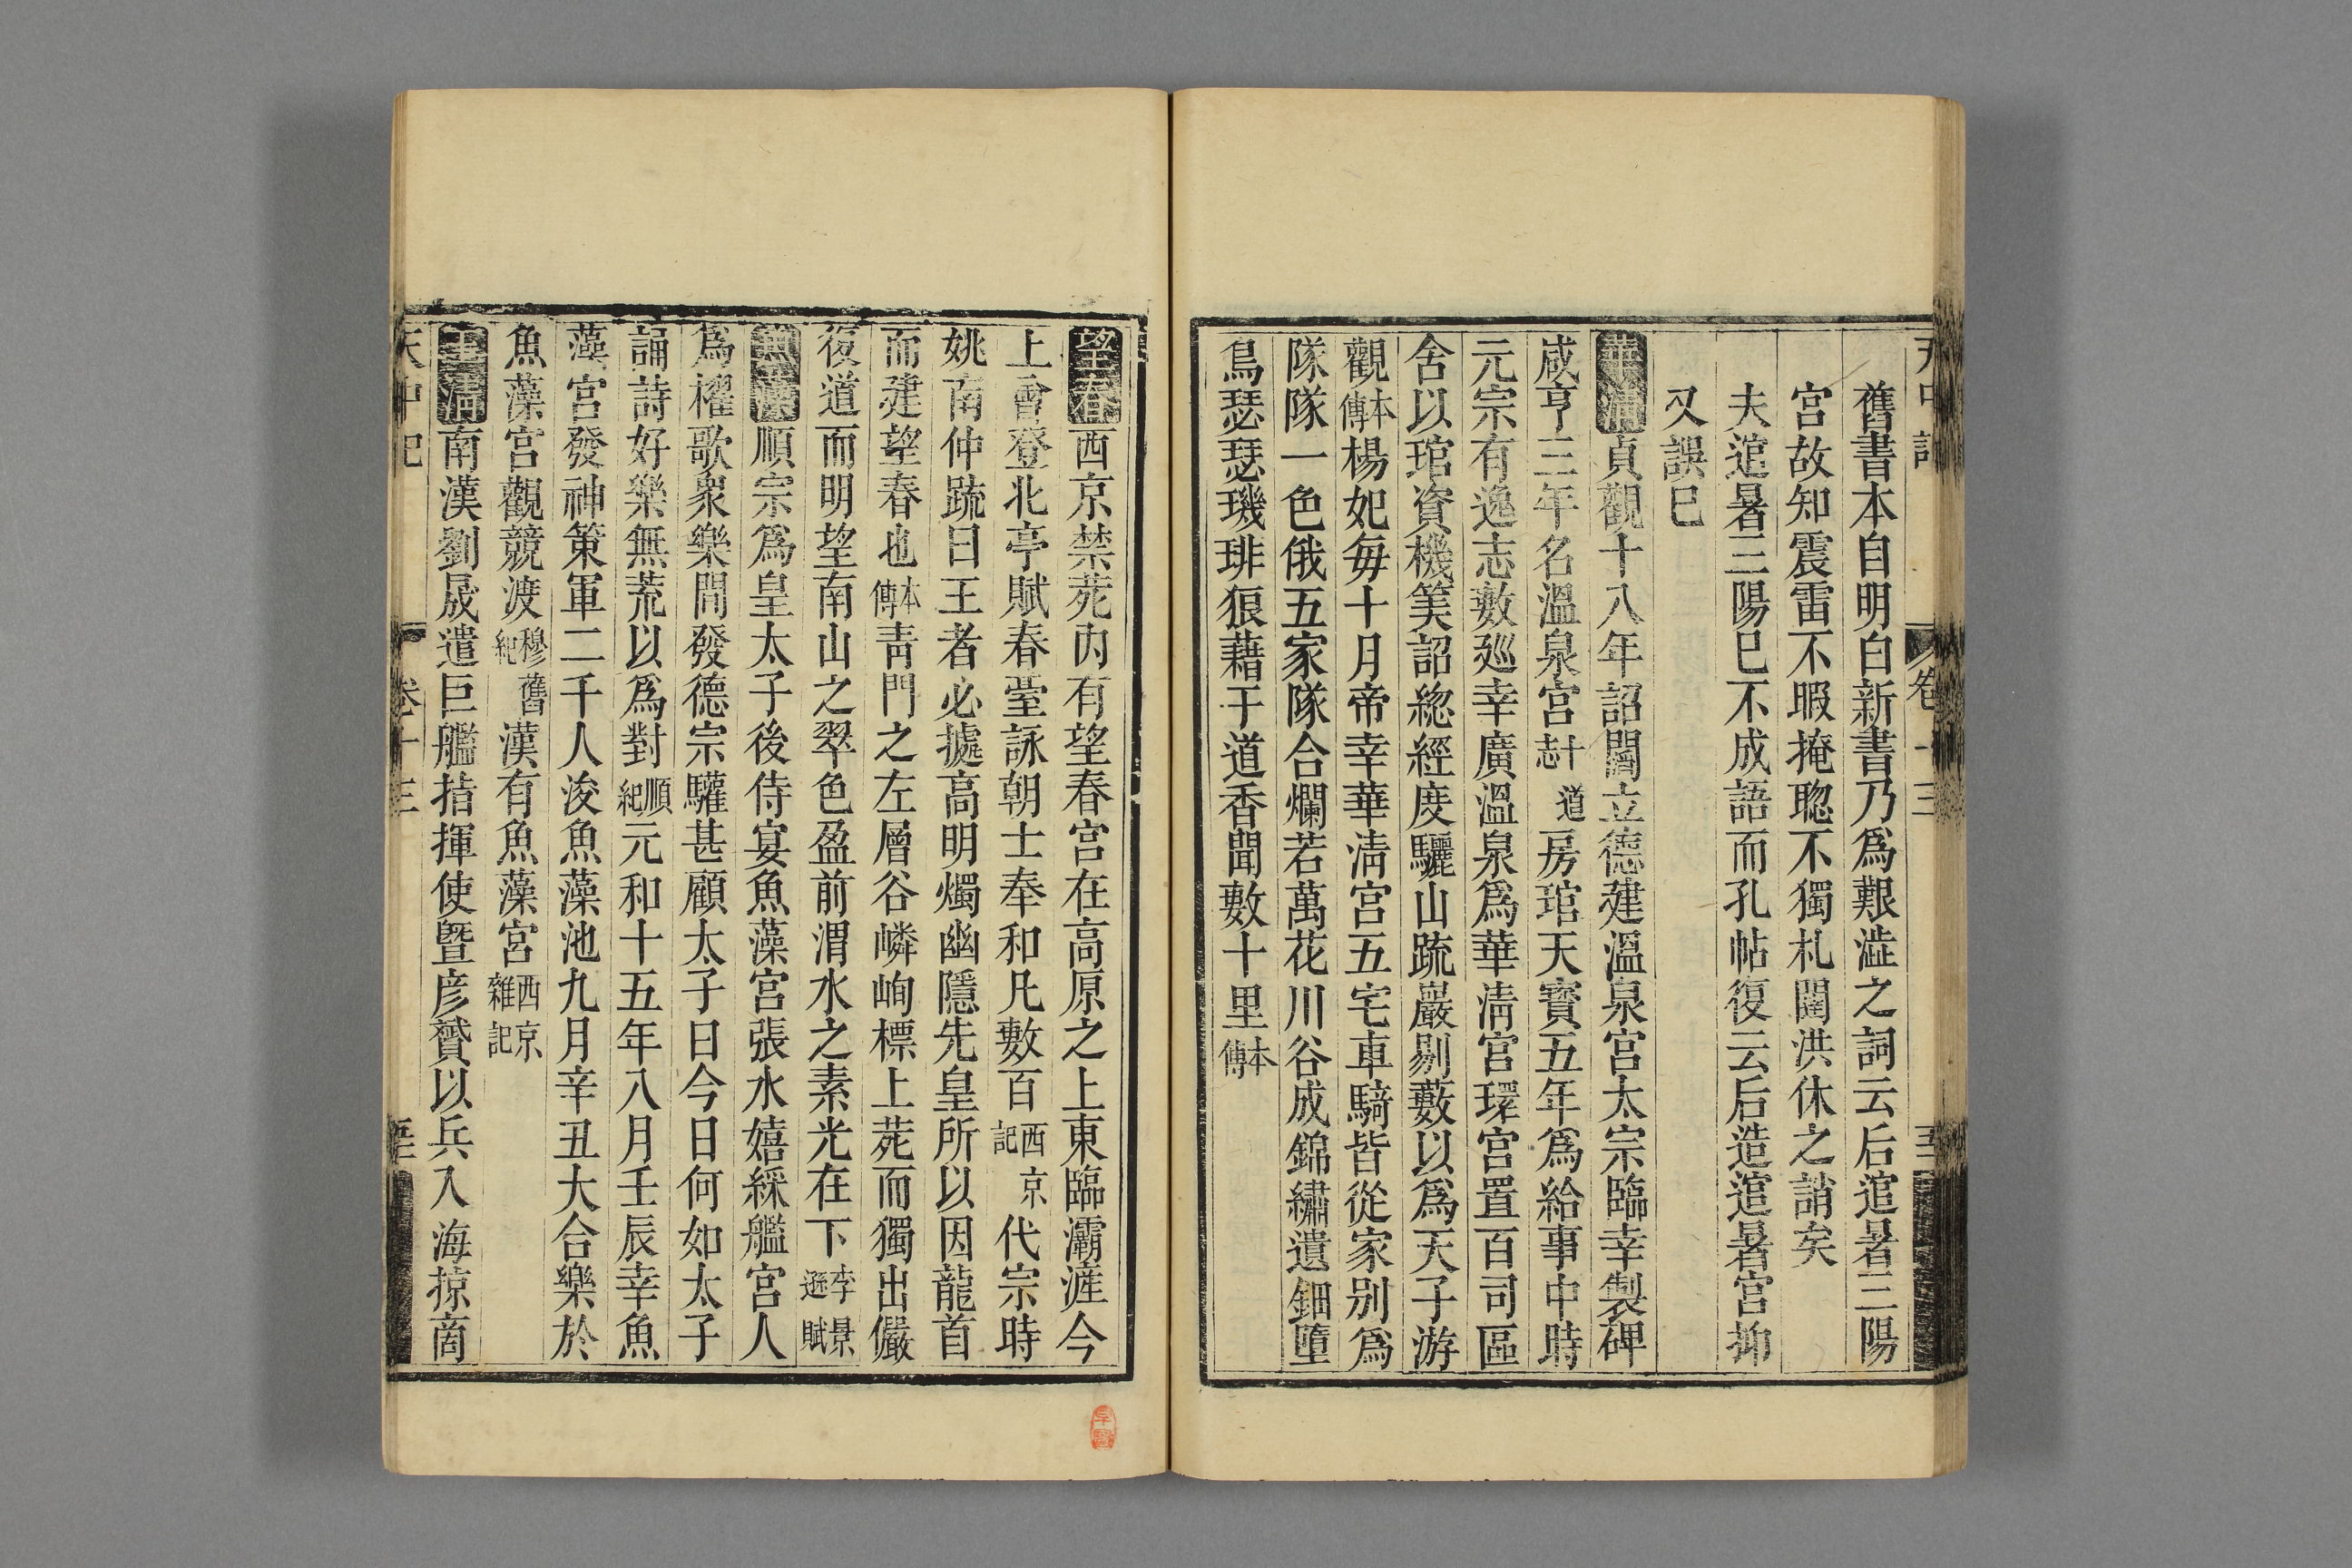 天中記
卷十三
舊書本自明白新書乃爲艱澁之詞云后逭暑三陽
宮故知震雷不暇掩聦不獨札闥洪休之誚矣
夫逭暑三陽巳不成語而孔帖復云后造逭暑宮抑
又誤巳
華清貞觀十八年詔閻立德建溫泉宮太宗臨幸製碑
咸亨三年名溫泉宮十道志房琯天寶五年爲給事中時
元宗有逸志數廵幸廣溫泉爲華淸宮環宮置百司區
舍以琯資機筭詔緫經度驪山䟽巖剔藪以爲天子游
觀本傳楊妃每十月帝幸華淸宮五宅車騎皆從家别爲
隊隊一色俄五家隊合爛若萬花川谷成錦繡遺鈿墮
舃瑟瑟璣琲狼藉于道香聞數十里本傳
望春西京禁苑内有望春宮在高原之上東臨灞滻今
上會登北亭賦春臺詠朝士奉和凡數百西京記代宗時
姚南仲䟽曰王者必據高明燭幽隱先皇所以因龍首
而建望春也本傳靑門之左層谷嶙峋標上苑而獨出儼
復道而明望南山之翠色盈前渭水之素光在下李景遜賦
魚藻順宗爲皇太子後侍宴魚藻宮張水嬉綵艦宮人
爲櫂歌衆樂間發德宗驩甚顧太子曰今日何如太子
誦詩好樂無荒以爲對順紀元和十五年八月壬辰幸魚
藻宮發神策軍二千人浚魚藻池九月辛丑大合樂於
魚藻宮觀競渡舊穆紀漢有魚藻宮西京雜記
玉淸南漢劉晟遣巨艦指揮使曁彦贇以兵入海掠商
天中記
卷十三